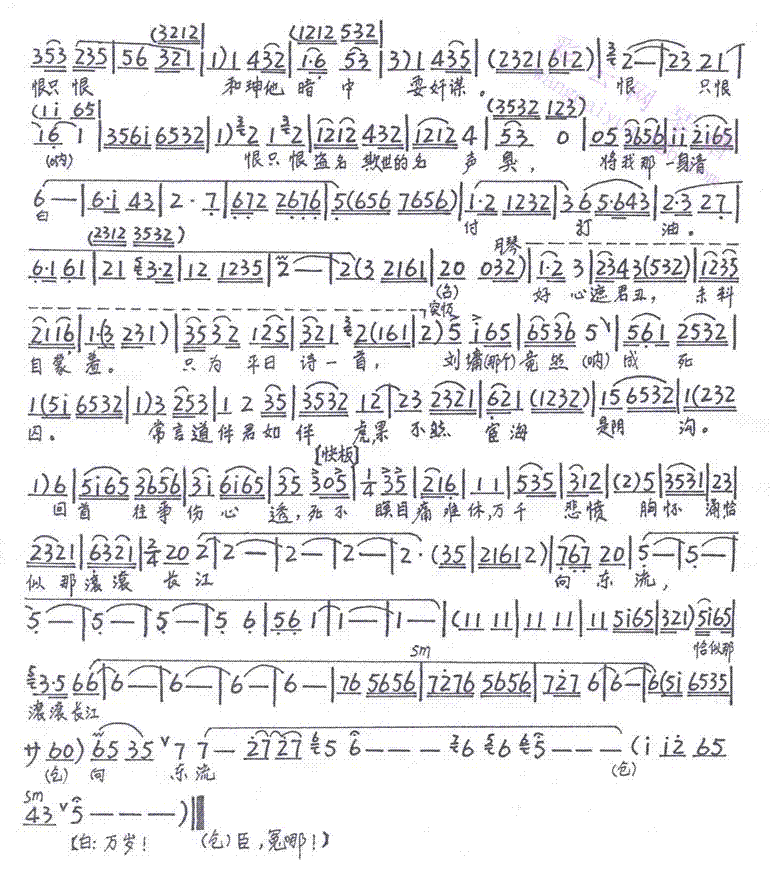 (3212) (1212 532)
353 235 | 56 321 | 1) 1 432 | 1·6 53 | 3) 1 435 | (2321 612) | 2 — | 23 21 |
恨只恨 和珅他暗中 耍奸谋。 恨 只恨
(1i 65) (3532 123)
16 1 | 3561 6532 | 1) 2 1 2 | 1212 432 | 1212 4 | 53 0 | 05 3656 | ii 2i65 |
(呐) 恨只恨盗名欺世的名声臭, 将我那一身清
6 — | 6·i 43 | 2 · 7 | 672 2676 | 5(656 7656) | 1·2 1232 | 36 5·643 | 2·3 27 |
白 付 訂 油。
(2312 3532) 月琴
6·1 61 | 21 3·2 | 12 1235 | 2 — | 2(3 2161 | 20 032) | 1·2 3 | 2343(532) | 1235 |
好心遮君丑, 未料
2116 | 1·(3 231) | 3532 125 | 321 2(161 | 2) 5 i65 | 6536 5 | 561 2532 |
自蒙羞。 只为平日诗一首, 刘墉(那个)竟然(呐)成死
1(5i 6532 | 1)3 253 | 1 2 35 | 3532 12 | 23 2321 | 621 (1232) | 15 6532 | 1(232
囚。 常言道伴君如伴虎果不然 宦海 是阴沟。
[快板]
1) 6 | 5i65 3656 | 3i 6i65 | 35 305 | 1/4 35 | 216 | 11 | 535 | 312 | (2)5 | 3531 | 23 |
回首往事伤心透,死不瞑目痛难休,万千悲愤胸怀涌恰
2321 | 6321 | 2/4 20 2 | 2 — | 2 — | 2 — | 2· (35 | 21612) | 767 20 | 5 — | 5 — |
似那滚滚长江 向东流,
5 — | 5 — | 5 — | 5 6 | 561 | 1 — | 1 — | (11 11 | 11 11 | 11 5i65 | 321) 5i65 |
恰似那
sm
3·5 66 | 6 — | 6 — | 6 — | 6 — | 76 5656 | 7276 5656 | 727 6 | 6 — | 6(5i 6535 |
滚滚长江
サ 60) 65 35 ∨ 7 7 — 2727 5 6 — — — 6 6 5 — — — (i ii2 65
(仓) 向 东流 (仓)
sm
43 ∨ 5 — — — ) ‖
【白:万岁! (仓)臣,冤哪!】